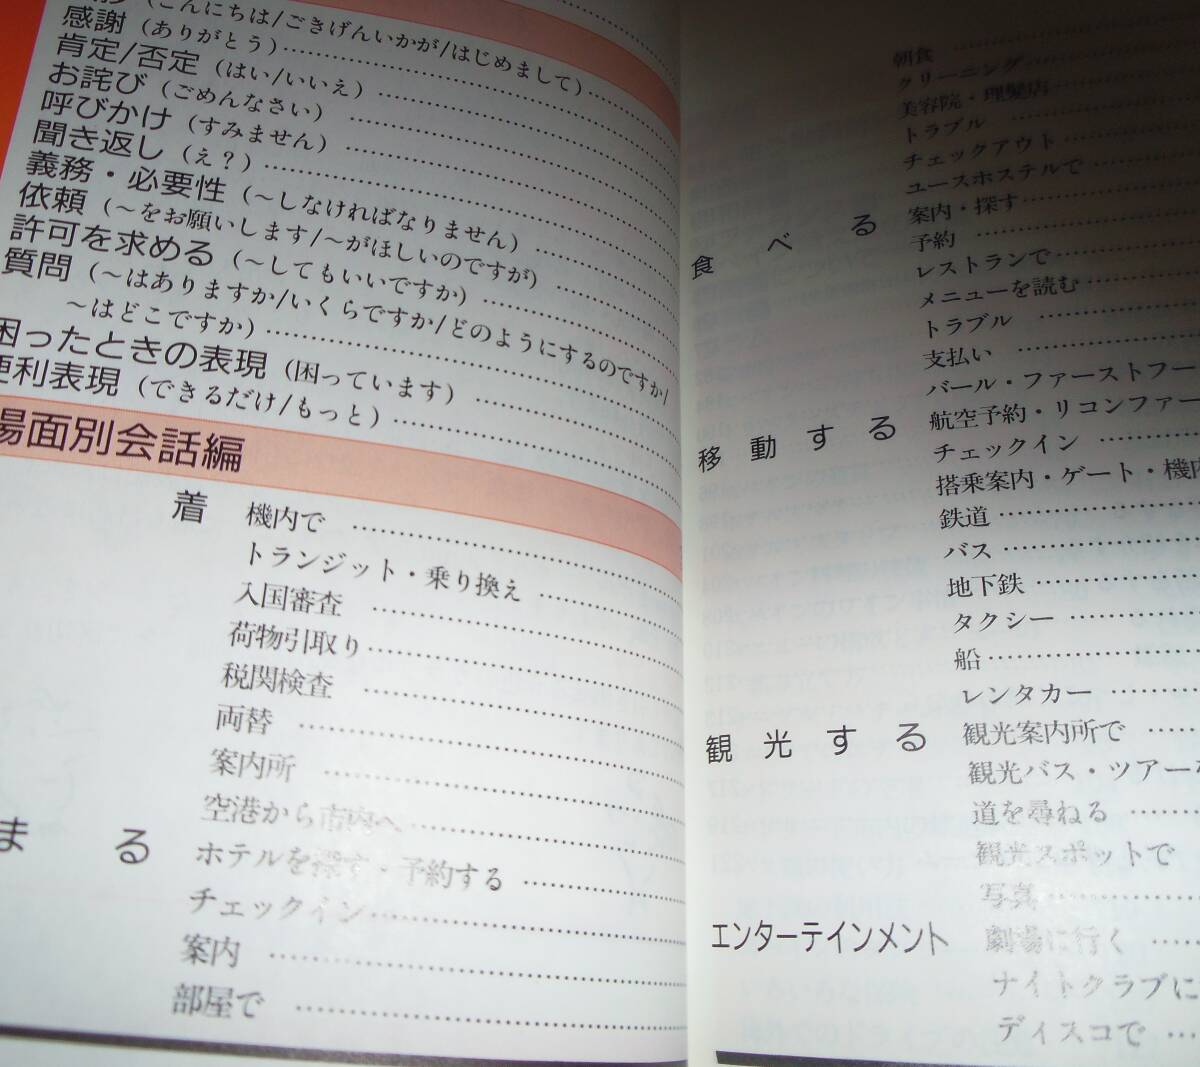 (こんにちは/ごきげんいかが/はじめまして)
感謝 (ありがとう)
肯定/否定 (はい/いいえ)
お詫び (ごめんなさい)
呼びかけ (すみません)
聞き返し (え?)
義務・必要性 (〜しなければなりません)
依頼 (〜をお願いします/〜がほしいのですが)
許可を求める (〜してもいいですか)
質問 (〜はありますか/いくらですか/どのようにするのですか/
〜はどこですか)
困ったときの表現 (困っています)
便利表現 (できるだけ/もっと)
場面別会話編
着 機内で
トランジット・乗り換え
入国審査
荷物引取り
税関検査
両替
案内所
空港から市内へ
まる ホテルを探す・予約する
チェックイン
案内
部屋で
朝食
クリーニング
美容院・理髪店
トラブル
チェックアウト
ユースホステルで
食べる 案内・探す
予約
レストランで
メニューを読む
トラブル
支払い
バール・ファーストフー
移動する 航空予約・リコンファー
チェックイン
搭乗案内・ゲート・機内
鉄道
バス
地下鉄
タクシー
船
レンタカー
観光する 観光案内所で
観光バス・ツアー
道を尋ねる
観光スポットで
写真
エンターテインメント 劇場に行く
ナイトクラブに
ディスコで